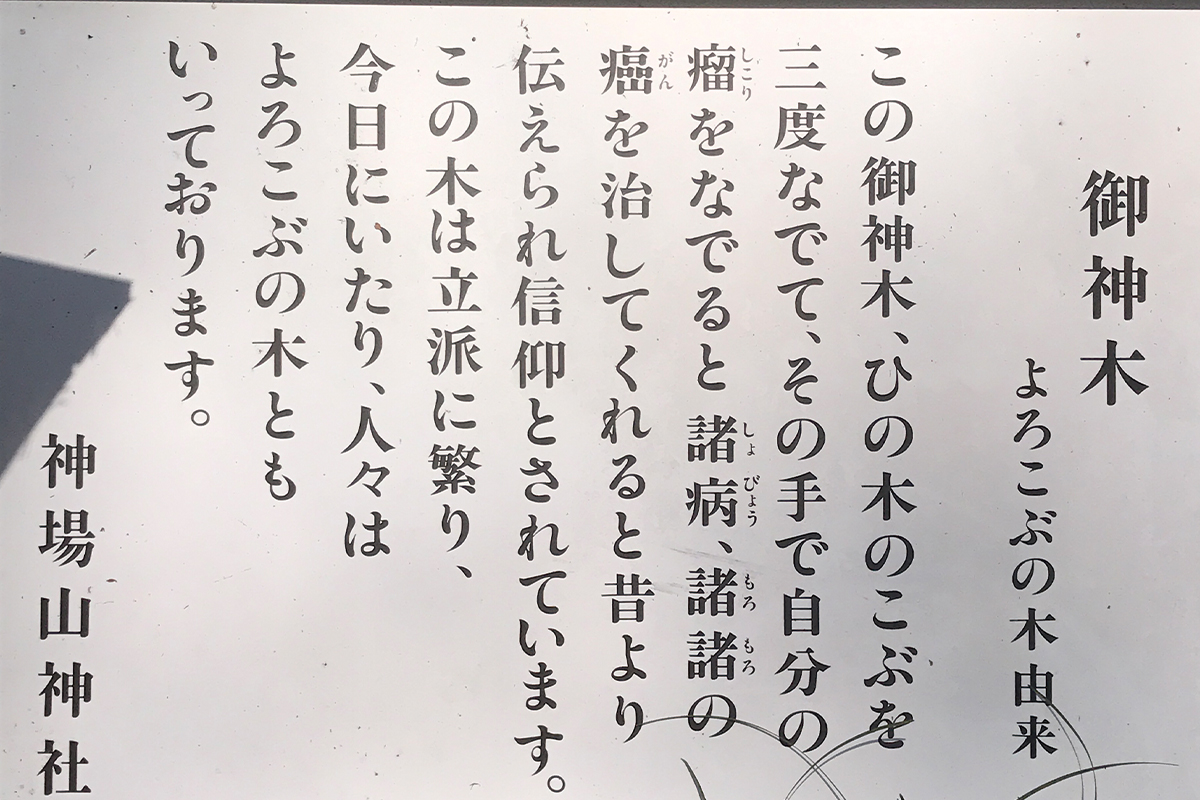 御神木
よろこぶの木由来
この御神木、ひの木のこぶを
三度なでて、その手で自分の
瘤をなでると諸病、諸諸の
癌を治してくれると昔より
伝えられ信仰とされています。
この木は立派に繁り、
今日にいたり、人々は
よろこぶの木とも
いっております。
神場山神社